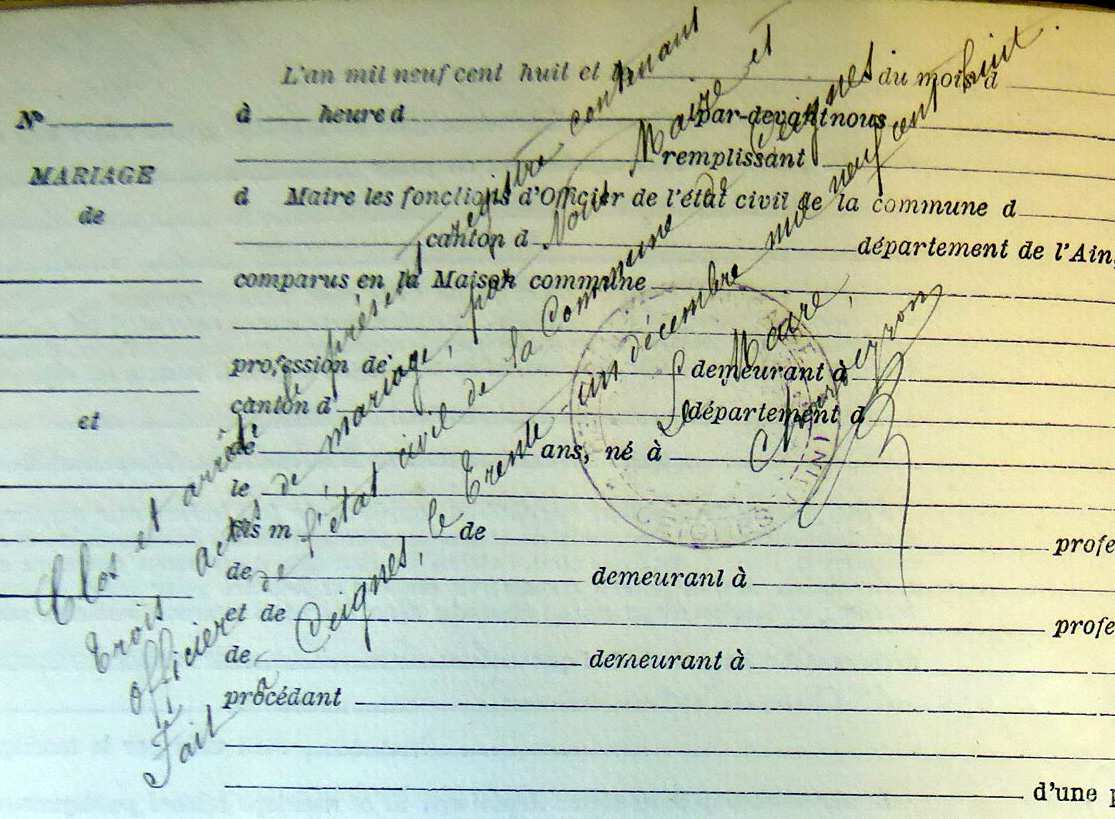 L'an mil neuf cent huit et l du mois d
N° à heure d par-devant nous
remplissant
MARIAGE
d Maire les fonctions d'Officier de l'état civil de la commune d
de
canton d département de l'Ain,
comparus en la Maison commune
profession de demeurant à
canton d département d
et
de ans, né à
le
fils m de profe
de demeurant à
et de profe
de demeurant à
procédant
d'une p
Clos et arrêté le présent registre contenant
trois actes de mariage, par Nous Maire et
officier de l'état civil de la Commune de Ceignes
Fait à Ceignes, le trente un décembre mil neuf cent huit.
Le Maire,
CEIGNES (AIN)